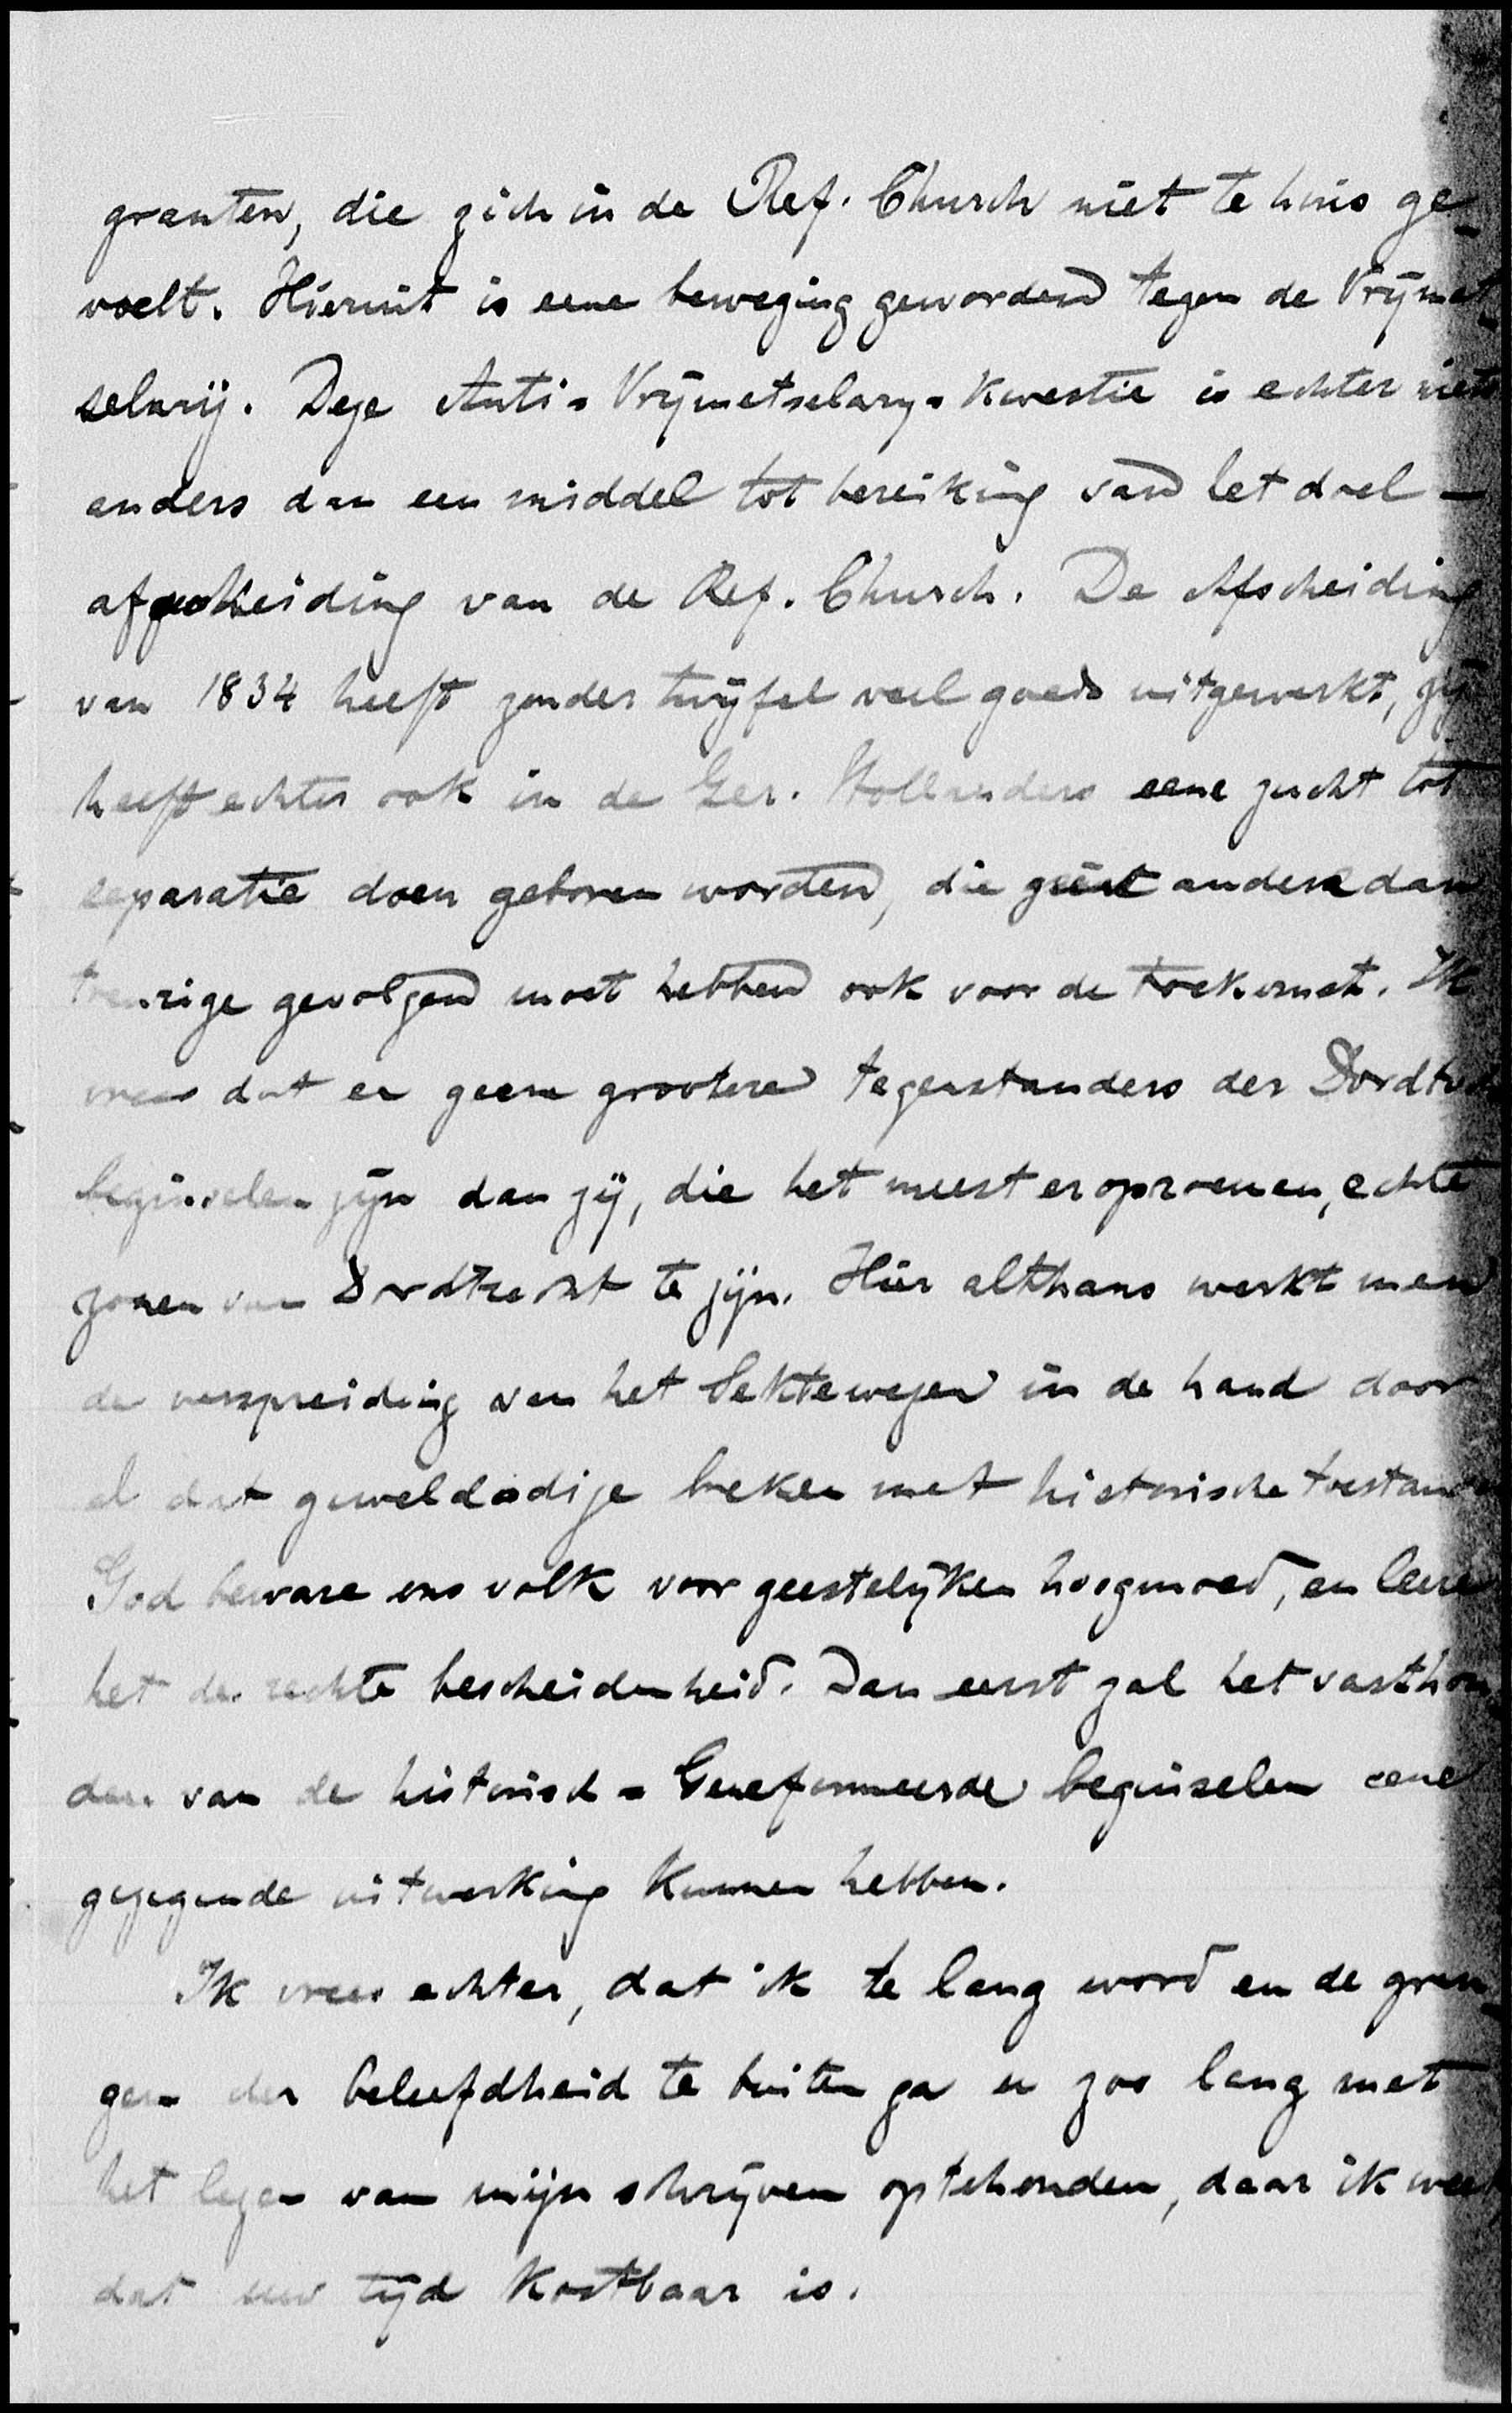 granten, die zich in de Ref. Church niet te huis ge-
voelt. Hieruit is eene beweging geworden tegen de Vrijmet-
selarij. Deze Anti-Vrijmetselary-Kwestie is echter niets
anders dan een middel tot bereiking van het doel —
afscheiding van de Ref. Church. De Afscheiding
van 1834 heeft zonder twijfel veel goeds uitgewerkt, zij
heeft echter ook in de Ger. Hollanders eene zucht tot
separatie doen geboren worden, die geene andere dan
treurige gevolgen moet hebben ook voor de toekomst. Ik
vrees dat er geen grootere tegenstanders der Dordtsch
beginselen zijn dan zij, die het meest er op roemen, echte
zonen van Dordtrecht te zijn. Hier althans werkt men
de verspreiding van het Sektewezen in de hand door
al dat geweldadige breken met historische toestanden
God beware ons volk voor geestelijken hoogmoed, en leere
het de rechte bescheidenheid. Dan eerst zal het vasthou-
den van de historisch-Gereformeerde beginselen eene
gezegende uitwerking kunnen hebben.
Ik vrees echter, dat ik te lang word en de gren-
zen der beleefdheid te buiten ga u zoo lang met
het lezen van mijn schrijven optehouden, daar ik weet,
dat uw tijd kostbaar is.